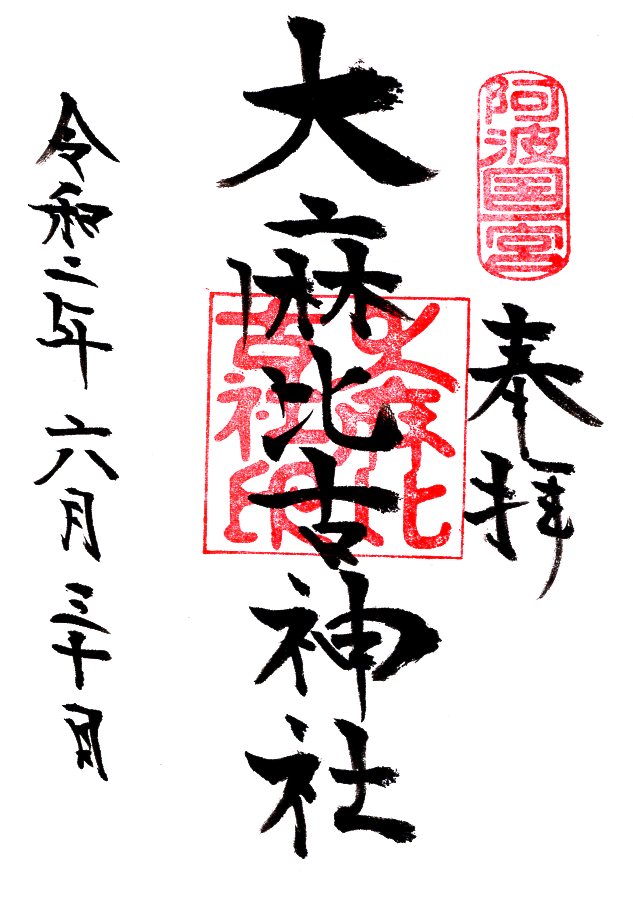 阿波国一宮
奉拝
大麻比古神社
大麻比
古社印
令和二年六月三十日